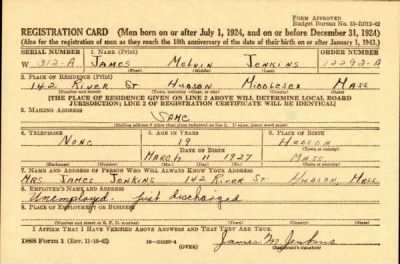 FORM APPROVED
Budget Bureau No. 33-R012-42
REGISTRATION CARD (Men born on or after July 1, 1924, and on or before December 31, 1924)
(Also for the registration of men as they reach the 18th anniversary of the date of their birth on or after January 1, 1943.)
SERIAL NUMBER 1. NAME (Print) ORDER NUMBER
W 312-A JAMES MELVIN JENKINS 12292-A
(First) (Middle) (Last)
2. PLACE OF RESIDENCE (Print)
142 RIVER ST HUDSON MIDDLESEX MASS
(Number and street) (Town, township, village, or city) (County) (State)
[THE PLACE OF RESIDENCE GIVEN ON LINE 2 ABOVE WILL DETERMINE LOCAL BOARD
JURISDICTION; LINE 2 OF REGISTRATION CERTIFICATE WILL BE IDENTICAL]
3. MAILING ADDRESS
SAME
[Mailing address if other than place indicated on line 2. If same, insert word same]
4. TELEPHONE 5. AGE IN YEARS 6. PLACE OF BIRTH
NONE 19 HUDSON
DATE OF BIRTH (Town or county)
MARCH 11 1927 MASS
(Exchange) (Number) (Mo.) (Day) (Yr.) (State or country)
7. NAME AND ADDRESS OF PERSON WHO WILL ALWAYS KNOW YOUR ADDRESS
MRS. JAMES JENKINS 142 RIVER ST. HUDSON, MASS
8. EMPLOYER'S NAME AND ADDRESS
Unemployed - just discharged
9. PLACE OF EMPLOYMENT OR BUSINESS
(Number and street or R. F. D. number) (Town) (County) (State)
I AFFIRM THAT I HAVE VERIFIED ABOVE ANSWERS AND THAT THEY ARE TRUE.
DSS Form 1 (Rev. 11-16-42) (OVER) James M. Jenkins
(Registrant's signature)